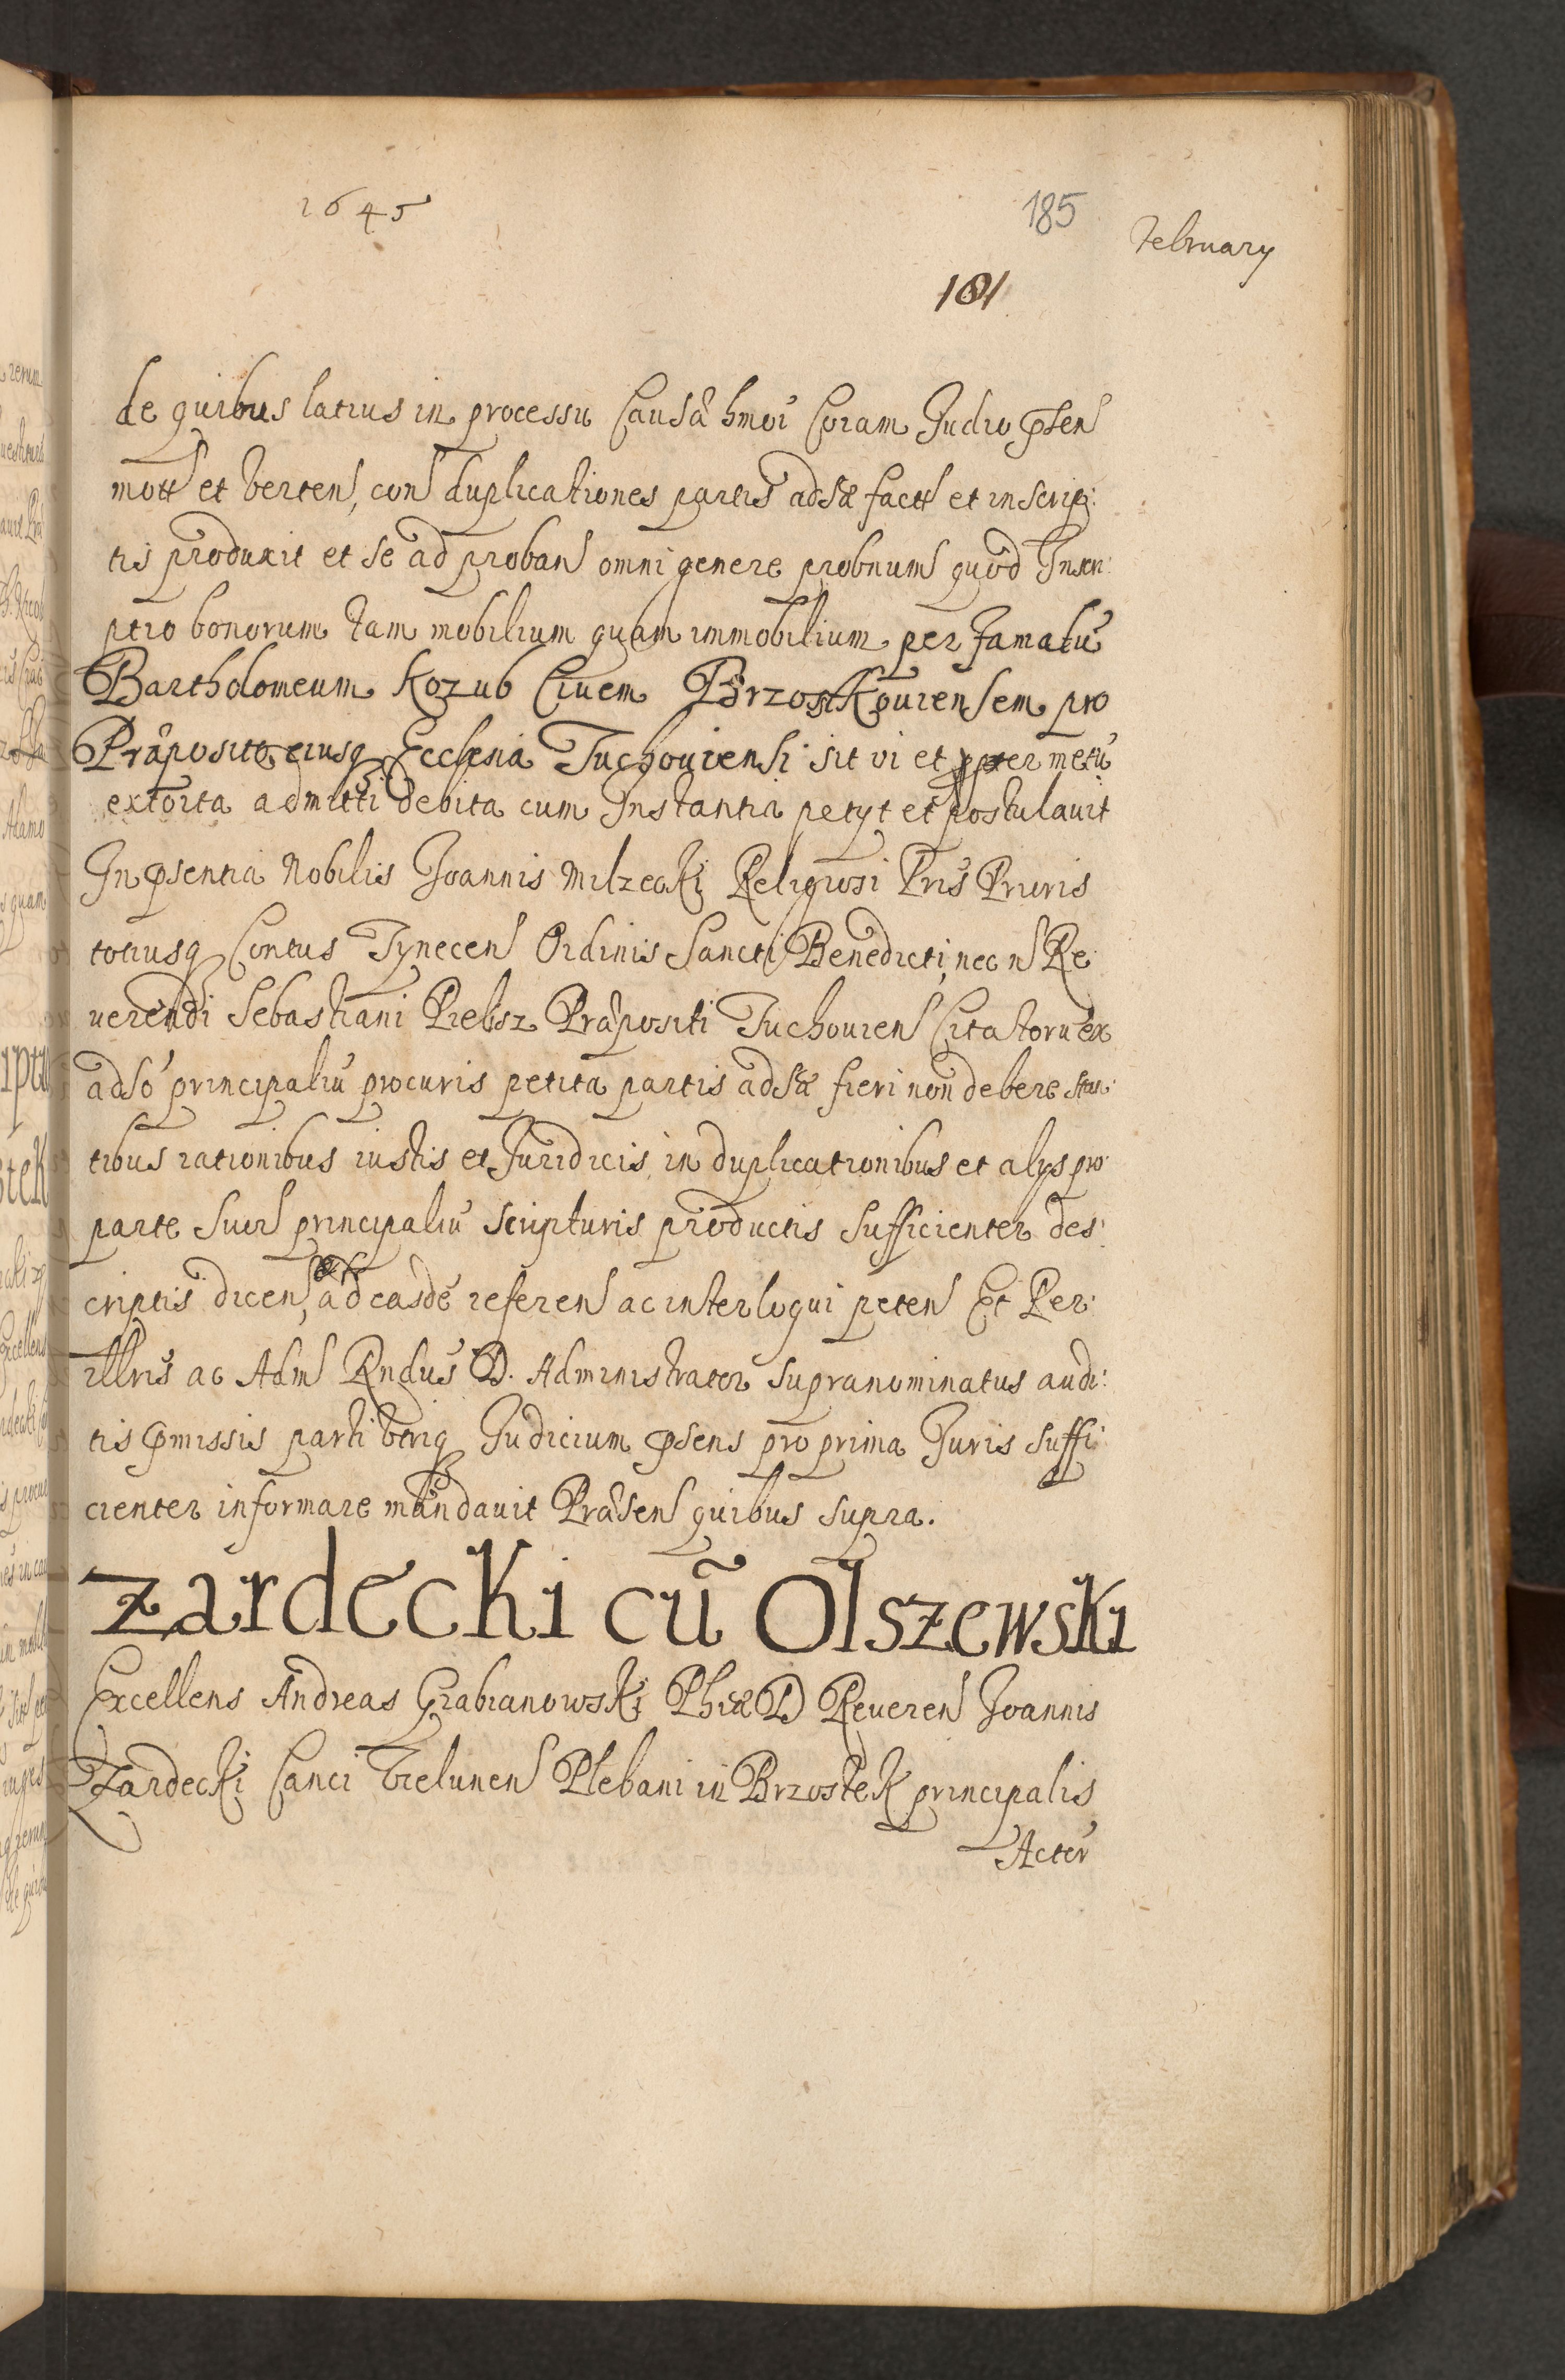 1645
185
February
181
de quibus latius in processu Causâ hmõi Coram Judio pñsen
mott et verten, con duplicationes partis adsæ factt et inscrip:
tis produxit et se ad proban omni genere probnum quod Inscri:
ptio bonorum tam mobilium quam immobilium per Famatũ
Bartholomeum Kozub Ciuem Brzostkouiensem pro
Præposito eiusq Ecclesia Tuchouiensi sit vi et ppter metũ
extorta admitti debita cum Instantia petyt et postulauit
In pñsentia Nobilis Joannis Milzecki Religiosi Pris Prioris
totiusq Contus Tynecen Ordinis Sancti Benedicti, nec n Re
uerendi Sebastiani Piebsz Præpositi Tuchouien Citatorũ ex
adso principaliũ procuris petita partis adsæ fieri non debere stan:
tibus rationibus iustis et Juridicis in duplicationibus et alys pro
parte suor principaliũ scripturis productis sufficienter des:
criptis dicen, ad easdẽ referen ac interloqui peten Et Per:
illris ac Adm Rndus D. Administrator supranominatus audi:
tis pmissis parti vtriq Judicium psens pro prima Juris suffi:
cienter informare mandauit Præsen quibus supra.
Zardecki cũ Olszewski
Excellens Andreas Grabianowski Phiæ D Reueren Joannis
Zardecki Canci Vielunen Plebani in Brzostek principalis
Acter